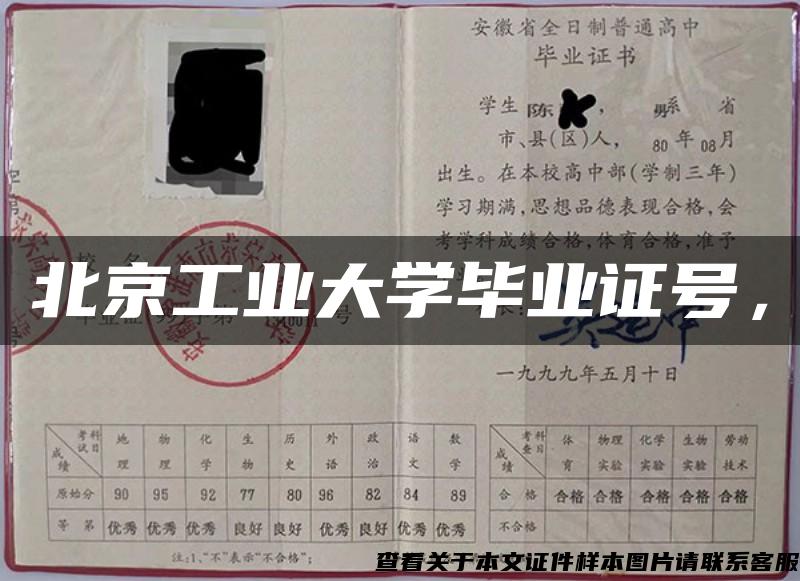 安徽省全日制普通高中
毕业证书
学生 陈 , 男 系 省
市、县(区)人, 80 年 08 月
出生。在本校高中部(学制三年)
学习期满,思想品德表现合格,会
考学科成绩合格,体育合格,准予
北京工业大学毕业证号,
校 名
毕业证 字第 号
一九九九年五月十日
考试科目 成绩 地理 物理 化学 生物 历史 外语 政治 语文 数学
原始分 90 95 92 77 80 96 82 84 89
等 第 优秀 优秀 优秀 良好 良好 优秀 良好 优秀 优秀
注:1、“不”表示“不合格”;
考查科目 成绩 体育 物理实验 化学实验 生物实验 劳动技术
合 格 合格 合格 合格 合格 合格
不合格
查看关于本文证件样本图片请联系客服